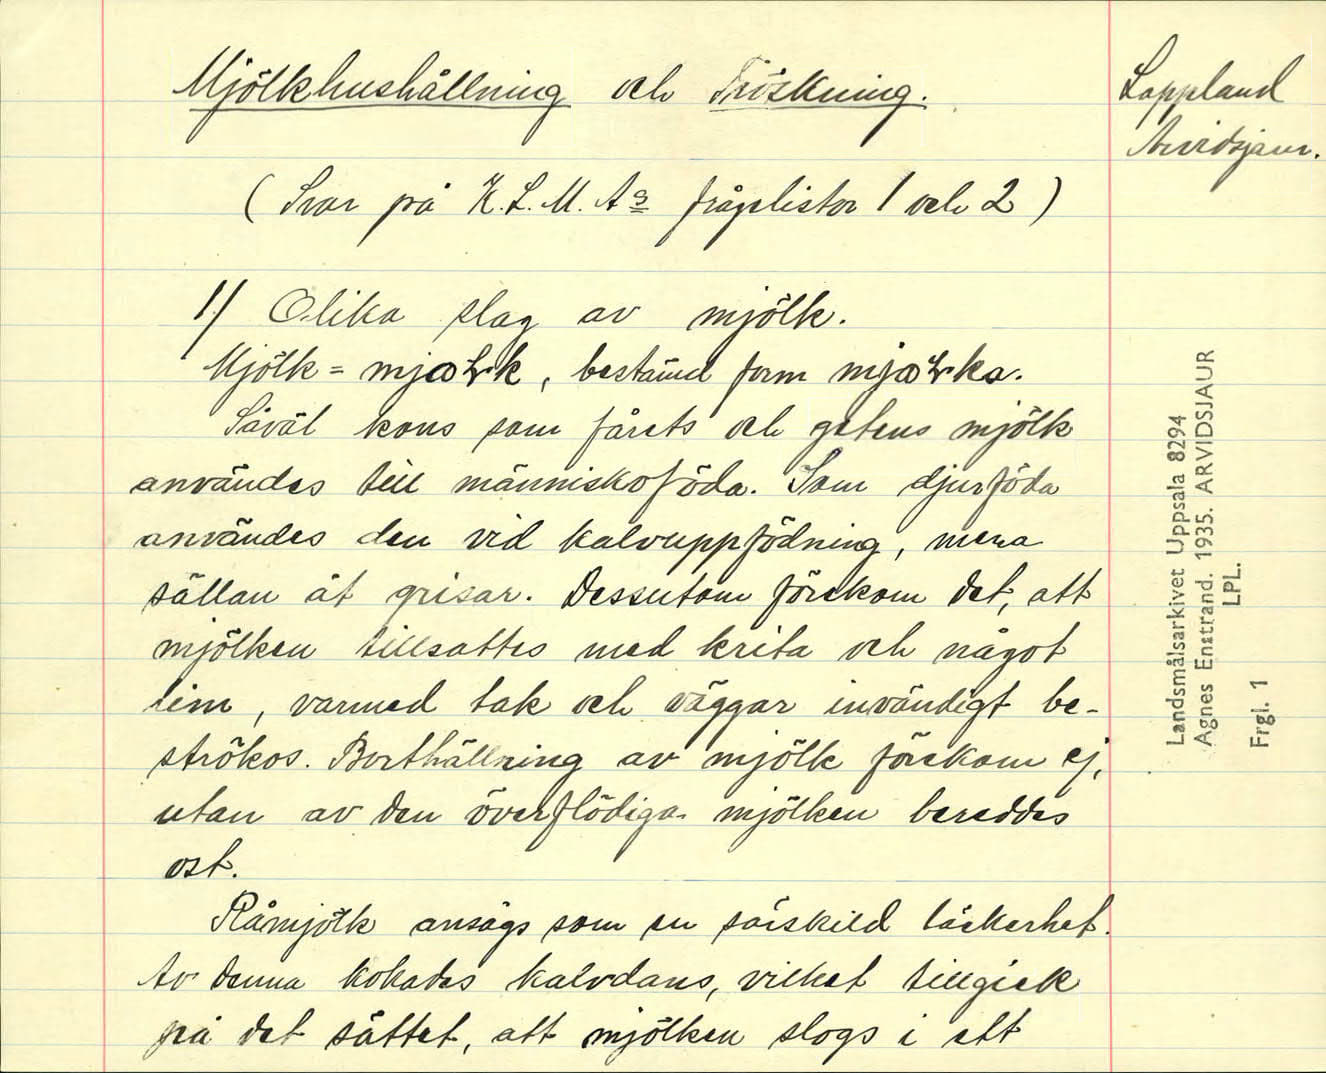 Mjölkhushållning och Tröskning.
(Svar på K.L.M.As frågelistor 1 och 2)
1/ Olika slag av mjölk.
Mjölk = , bestämd form
Såväl kons som fårets och getens mjölk
användes till människoföda. Som djurföda
användes den vid kalvuppfödning, mera
sällan åt grisar. Dessutom förekom det, att
mjölken tillsattes med krita och något
lim, varmed tak och väggar invändigt be-
strökos. Borthällning av mjölk förekom ej,
utan av den överflödiga mjölken bereddes
ost.
Råmjölk ansågs som en särskild läckerhet.
Av denna kokades kalvdans, vilket tillgick
på det sättet, att mjölken slogs i ett
Lappland
Arvidsjaur.
Landsmålsarkivet Uppsala 8294
Agnes Enstrand. 1935. ARVIDSJAUR
LPL.
Frgl. 1